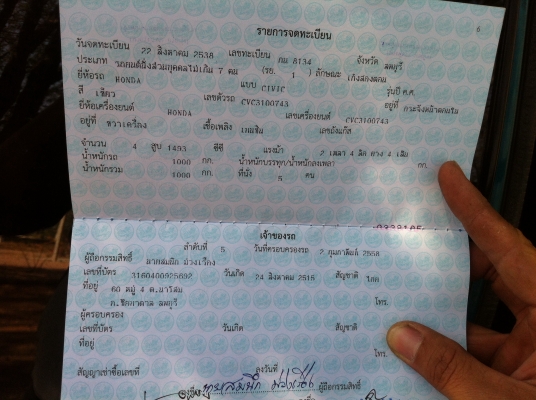 6
รายการจดทะเบียน
วันจดทะเบียน 22 สิงหาคม 2538 เลขทะเบียน กม 8134 จังหวัด ลพบุรี
ประเภท รถยนต์นั่งส่วนบุคคลไม่เกิน 7 คน (รย. 1 ) ลักษณะ เก๋งสองตอน
ยี่ห้อรถ HONDA แบบ CIVIC รุ่นปี ค.ศ.
สี เขียว เลขตัวรถ CVC3100743 อยู่ที่
ยี่ห้อเครื่องยนต์ HONDA เลขเครื่องยนต์ CVC3100743
อยู่ที่ ขวาเครื่อง เชื้อเพลิง เบนซิน เลขถังแก๊ส
จำนวน 4 สูบ 1493 ซีซี แรงม้า 2 เพลา 4 ล้อ ยาง 4 เส้น
น้ำหนักรถ 1000 กก. น้ำหนักบรรทุก/น้ำหนักลงเพลา กก.
น้ำหนักรวม 1000 กก. ที่นั่ง 5 คน
เจ้าของรถ
ลำดับที่ 5 วันที่ครอบครองรถ 2 กุมภาพันธ์ 2558
ผู้ถือกรรมสิทธิ์ นายสมนึก ม่วงเรือง
เลขที่บัตร 3160400925692 วันเกิด 24 สิงหาคม 2515 สัญชาติ ไทย
ที่อยู่ 60 หมู่ 4
อ.ชัยบาดาล ลพบุรี โทร.
ผู้ครอบครอง
เลขที่บัตร วันเกิด สัญชาติ
ที่อยู่
โทร.
สัญญาเช่าซื้อเลขที่ ลงวันที่
ลงชื่อ นายสมนึก ม่วงเรือง ผู้ถือกรรมสิทธิ์